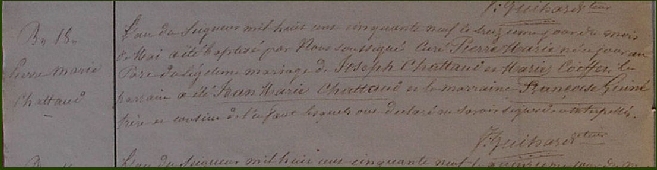 J: Guihard
Bs 18.
Pierre Marie
Chattaud
L'an du Seigneur mil huit cent cinquante neuf le treizieme jour du mois
de Mai a été baptisé par Nous soussigné Curé Pierre Marie né du jour au
du légitime mariage de Joseph Chattaud et Marie Coiffer le
parrain a été Jean Marie Chattaud et la marraine Françoise
frère et cousine de l'enfant lesquels ont déclaré ne savoir signer de ce interpellés.
J: Guihard
L'an du Seigneur mil huit cent cinquante neuf le jour du m